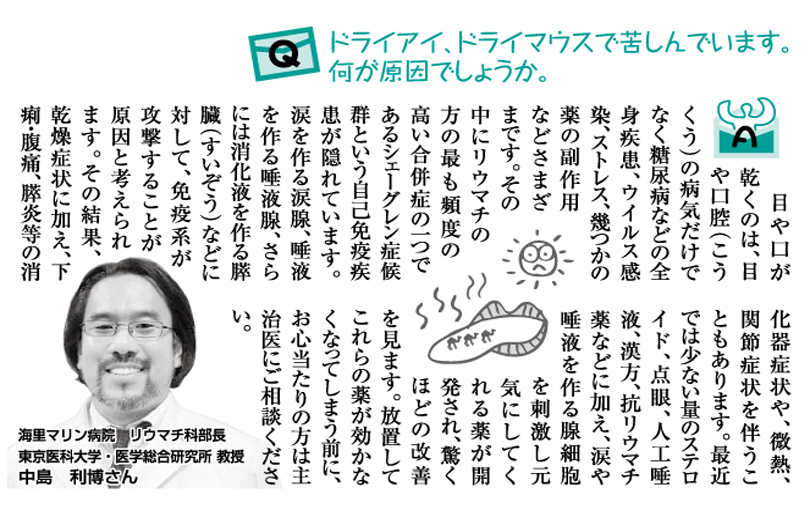 Q
ドライアイ、ドライマウスで苦しんでいます。
何が原因でしょうか。
A
目や口が
乾くのは、目
や口腔（こう
くう）の病気だけで
なく糖尿病などの全
身疾患、ウイルス感
染、ストレス、幾つかの
薬の副作用
などさまざ
まです。その
中にリウマチの
方の最も頻度の
高い合併症の一つで
あるシェーグレン症候
群という自己免疫疾
患が隠れています。
涙を作る涙腺、唾液
を作る唾液腺、さら
には消化液を作る膵
臓（すいぞう）などに
対して、免疫系が
攻撃することが
原因と考えられ
ます。その結果、
乾燥症状に加え、下
痢・腹痛、膵炎等の消
化器症状や、微熱、
関節症状を伴うこ
ともあります。最近
では少ない量のステロ
イド、点眼、人工唾
液、漢方、抗リウマチ
薬などに加え、涙や
唾液を作る腺細胞
を刺激し元
気にしてく
れる薬が開
発され、驚く
ほどの改善
を見ます。放置して
これらの薬が効かな
くなってしまう前に、
お心当たりの方は主
治医にご相談くださ
い。
海里マリン病院　リウマチ科部長
東京医科大学・医学総合研究所 教授
中島　利博さん